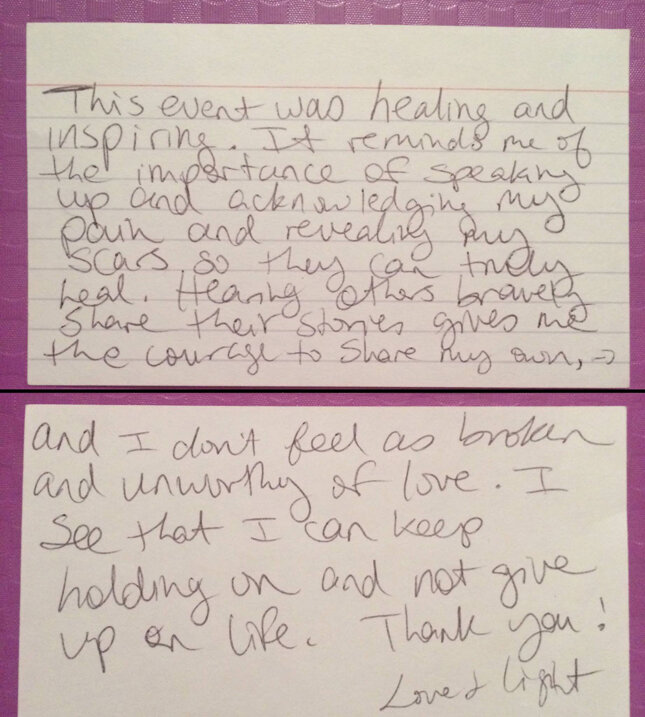 This event was healing and
inspiring. It reminds me of
the importance of speaking
up and acknowledging my
pain and revealing my
scars so they can truly
heal. Hearing others bravely
share their stories gives me
the courage to share my own, →
and I don't feel as broken
and unworthy of love. I
see that I can keep
holding on and not give
up on life. Thank you!
Love & light